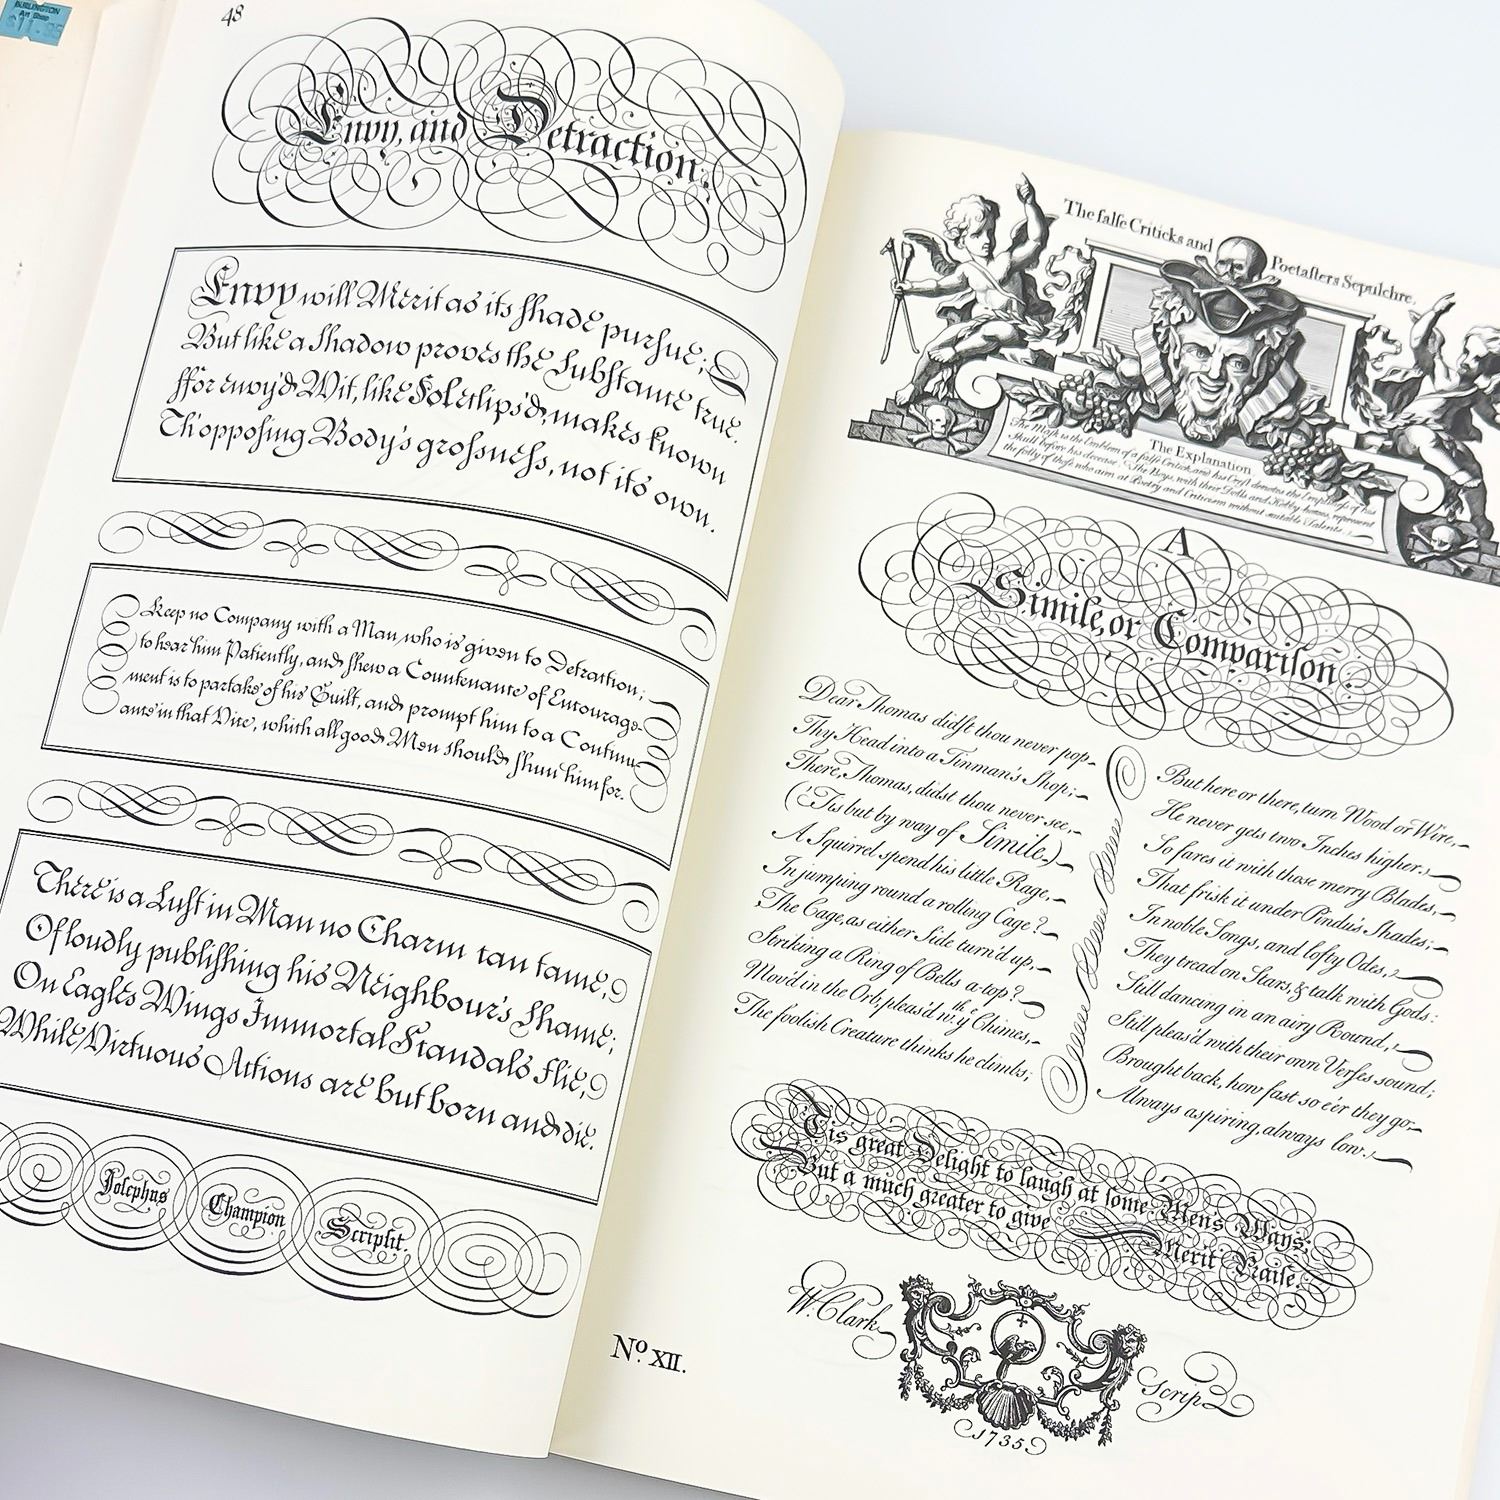 BURLINGTON
Art Shop
48
Envy, and Detraction;
Envy will Merit as its shade pursue;
But like a Shadow proves the Substance true.
ffor envy'd Wit, like Sol eclips'd, makes known
Th'opposing Body's grossness, not its own.
Keep no Company with a Man, who is given to Detraction;
to hear him Patiently, and shew a Countenance of Encourage-
ment is to partake of his Guilt, and prompt him to a Continu-
ance in that Vice, which all good Men should shun him for.
There is a Lust in Man no Charm can tame,
Of loudly publishing his Neighbour's Shame;
On Eagles Wings Immortal Scandals flie,
While Virtuous Actions are but born and die.
Josephus
Champion
Scripsit.
The false Criticks and Poetasters Sepulchre.
The Explanation
The Mask is the Emblem of a false Critick, and his Crest denotes the Emptiness of his
Skull before his decease. The Boys, with their Dolls and Hobby horses, represent
the folly of those who aim at Poetry and Criticism without suitable Talents.
A
Simile, or Comparison.
Dear Thomas didst thou never pop
Thy Head into a Tinman's Shop;
There, Thomas, didst thou never see,
('Tis but by way of Simile,)
A Squirrel spend his little Rage,
In jumping round a rolling Cage?
The Cage, as either Side turn'd up,
Striking a Ring of Bells a-top?
Mov'd in the Orb, pleas'd wth ye Chimes,
The foolish Creature thinks he climbs;
But here or there, turn Wood or Wire,
He never gets two Inches higher.
So fares it with those merry Blades,
That frisk it under Pindus Shades;
In noble Songs, and lofty Odes,
They tread on Stars, & talk with Gods:
Still dancing in an airy Round,
Still pleas'd with their own Verses sound;
Brought back, how fast so e'er they go,
Always aspiring, always low.
'Tis great Delight to laugh at some Men's Ways;
But a much greater to give Merit Praise.
W. Clark Scrip.
1735
No. XII.